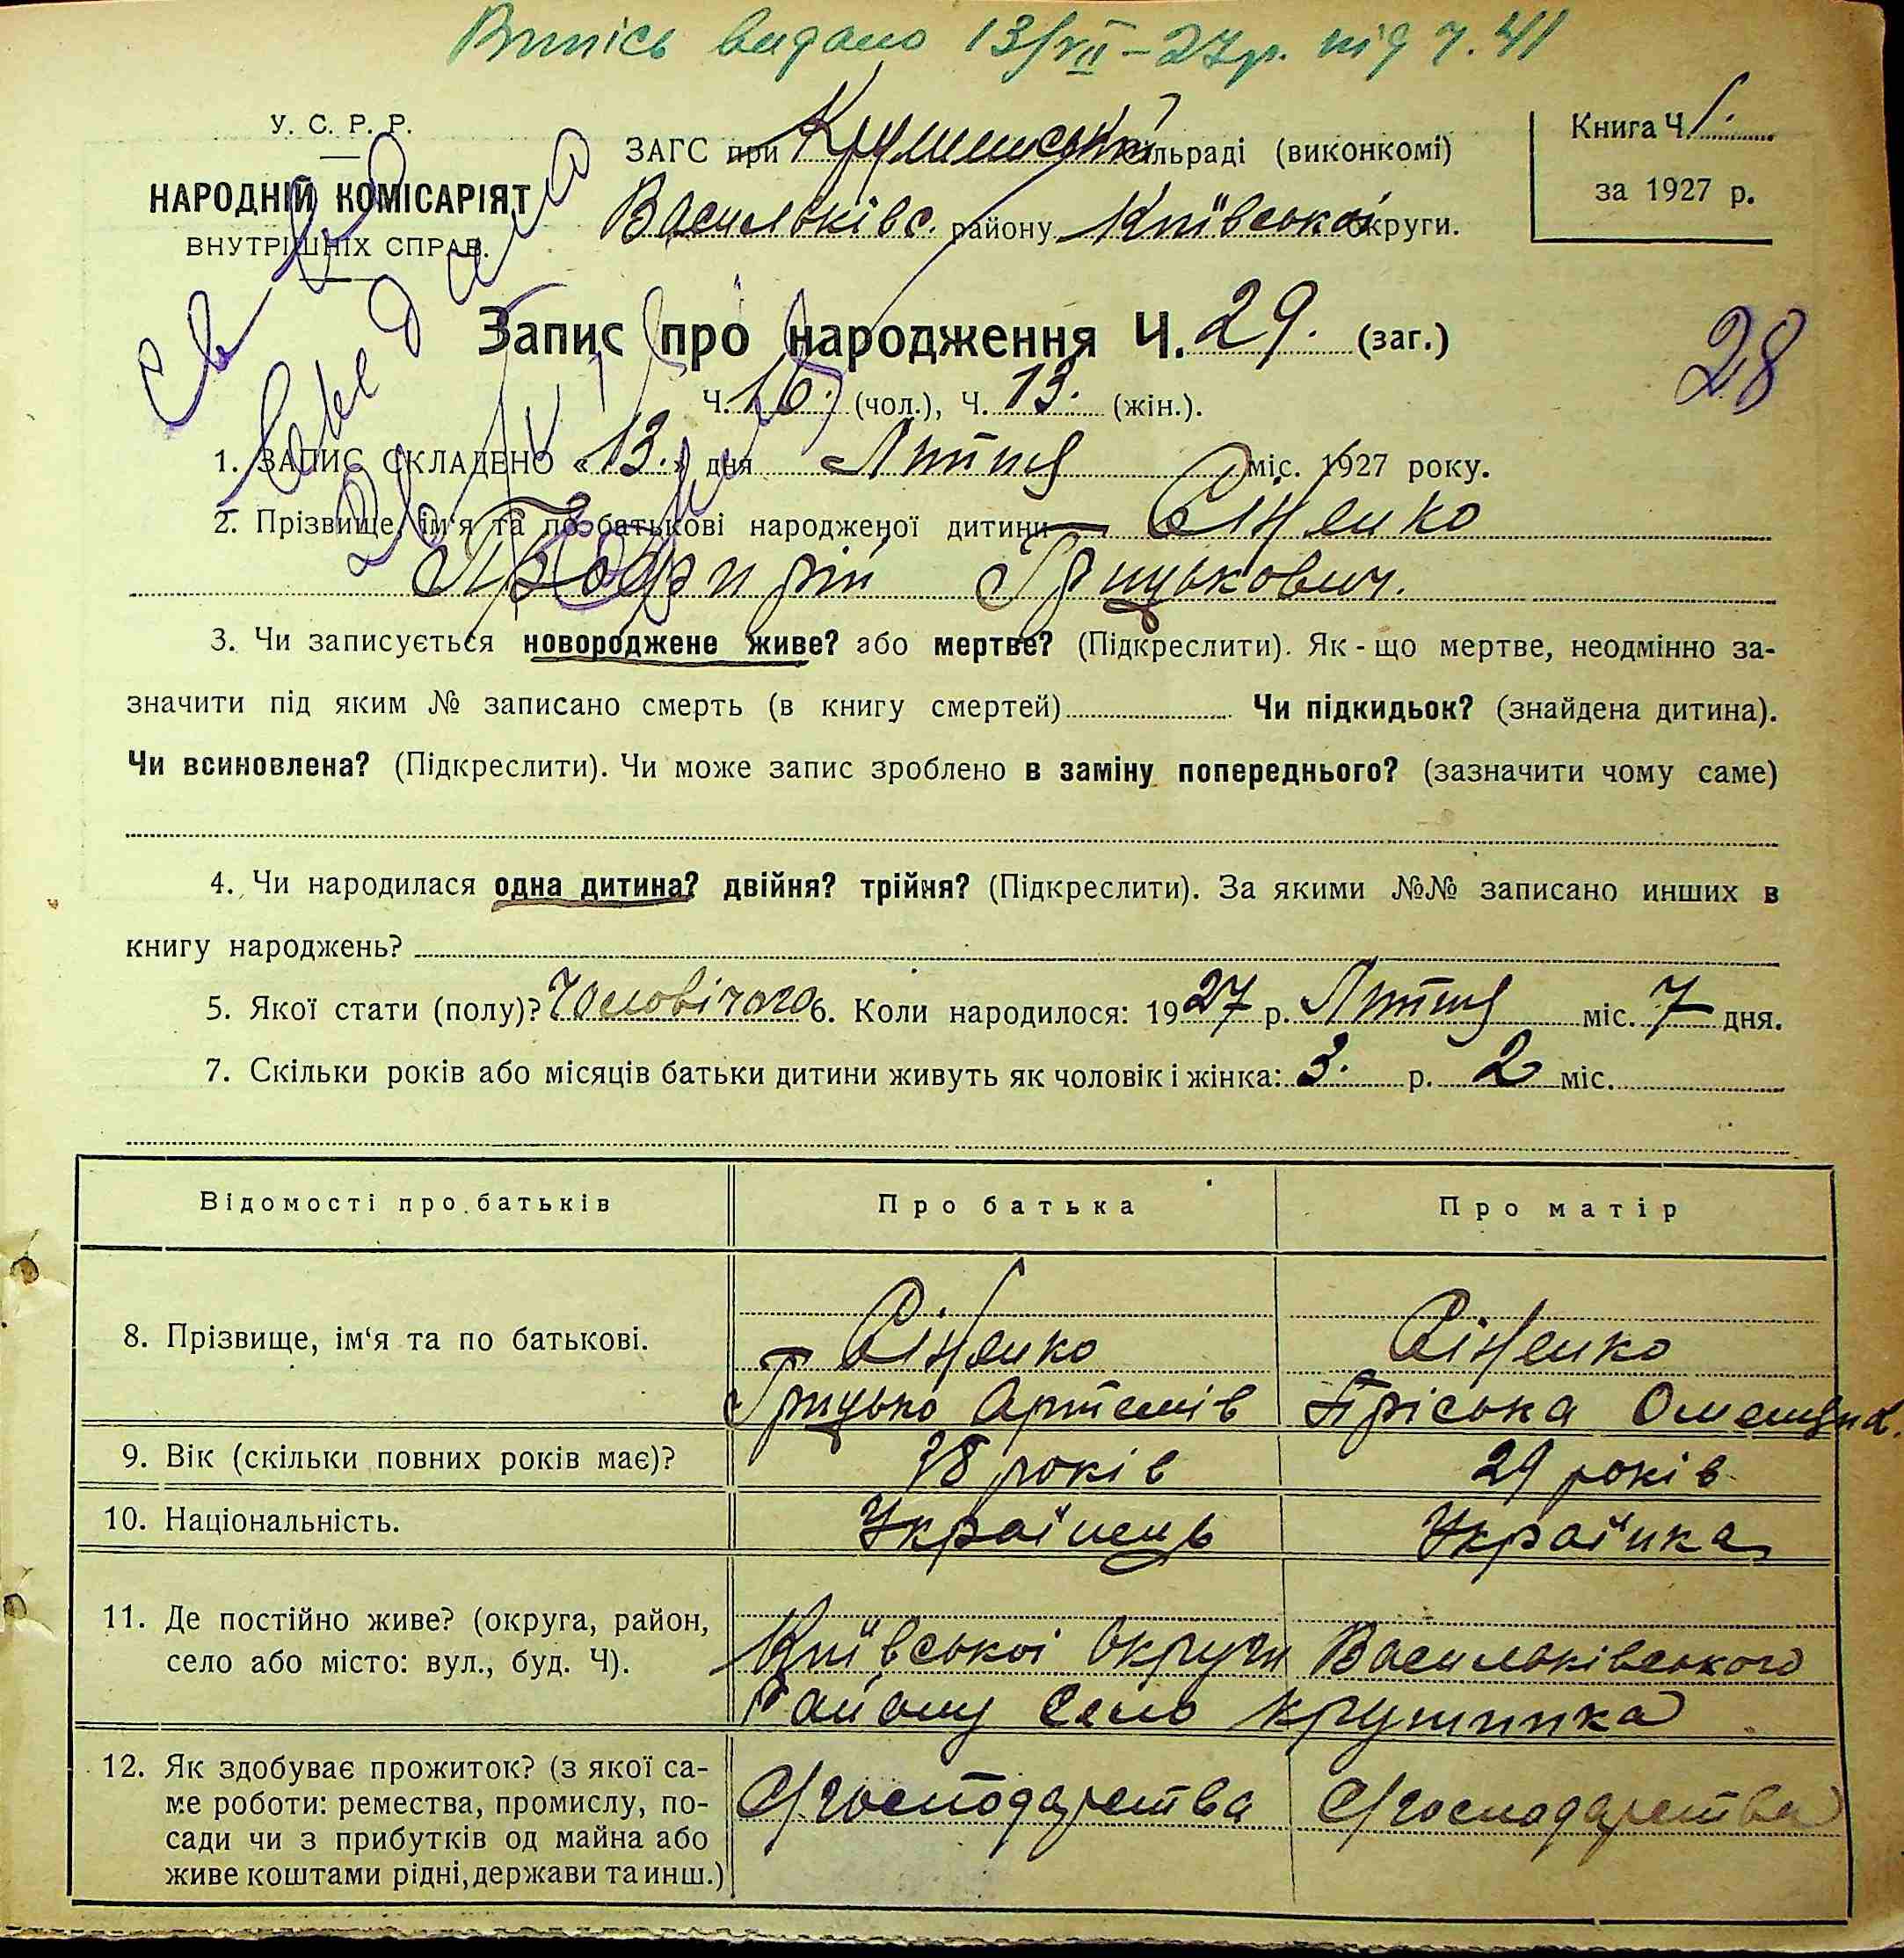 Випісь видано 13/VII–27р. під ч. 41
У. С. Р. Р.
НАРОДНІЙ КОМІСАРІЯТ
ВНУТРІШНІХ СПРАВ.
ЗАГС при сільраді (виконкомі)
Васильківс. району Київської округи.
Книга Ч. 1.
за 1927 р.
Запис про народження Ч. 29. (заг.)
28
Ч. 16. (чол.), Ч. 13. (жін.).
1. ЗАПИС СКЛАДЕНО «13.» дня Липня міс. 1927 року.
2. Прізвище, ім'я та по батькові народженої дитини Сіненко
Профирій Грицькович.
3. Чи записується новороджене живе? або мертве? (Підкреслити). Як-що мертве, неодмінно за-
значити під яким № записано смерть (в книгу смертей) Чи підкидьок? (знайдена дитина).
Чи всиновлена? (Підкреслити). Чи може запис зроблено в заміну попереднього? (зазначити чому саме)
4. Чи народилася одна дитина? двійня? трійня? (Підкреслити). За якими №№ записано инших в
книгу народжень?
5. Якої стати (полу)? Чоловічого 6. Коли народилося: 1927 р. Липня міс. 7 дня.
7. Скільки років або місяців батьки дитини живуть як чоловік і жінка: 3. р. 2 міс.
Відомості про батьків Про батька Про матір
8. Прізвище, ім'я та по батькові. Сіненко Сіненко
Грицько Артемів Пріська
9. Вік (скільки повних років має)? 38 років 29 років
10. Національність. Українець Українка
11. Де постійно живе? (округа, район,
село або місто: вул., буд. Ч).
Київської округи Васильківського
району село Крушинка
12. Як здобуває прожиток? (з якої са-
ме роботи: ремества, промислу, по-
сади чи з прибутків од майна або
живе коштами рідні, держави та инш.)
С/господарства С/господарства